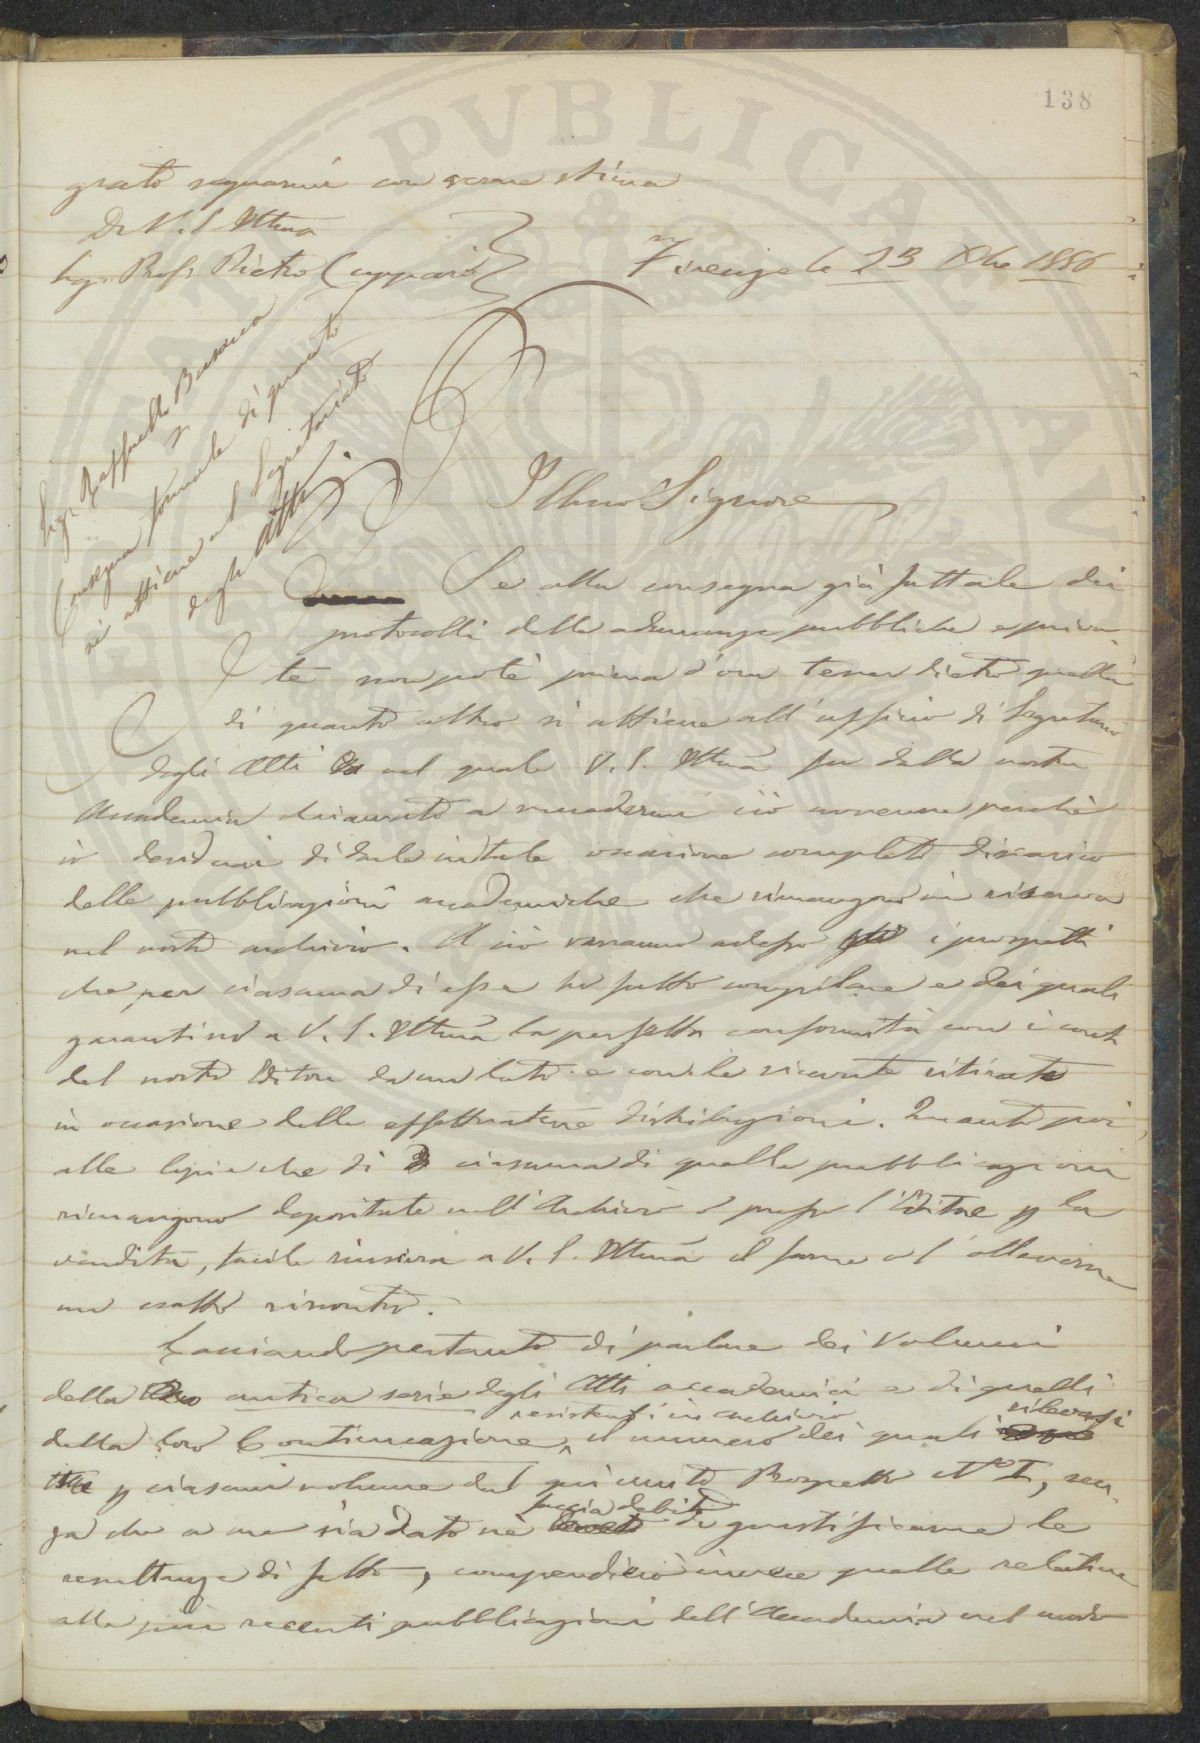 138
grato segnarmi con vera stima
Di V. S. Illma
Sig. Prof. Pietro Cuppari
Firenze le 23 Xbre 1856
Sig. Raffaello Busacca
Consegna formale di quanto
si attiene al Segretariato
degli Atti.
Illmo Signore
Se alla consegna già fattale dei
protocolli delle adunanze pubbliche e priva-
te non potè prima d'ora tener dietro quella
di quanto altro si attiene all'ufficio di Segretario
degli Atti nel quale V. S. Illma fu dalla nostra
Accademia chiamato a succedermi ciò avvenne perchè
io desiderai di darle in tale occasione completo discarico
delle pubblicazioni accademiche che rimangono in riserva
nel nostro archivio. A ciò varranno adesso i prospetti
che per ciascuna di esse ho fatto compilare e dei quali
garantisco a V. S. Illma la perfetta conformità con i conti
del nostro Editore da un lato e con le ricevute ritirate
in occasione delle effettuatene distribuzioni. Quanto poi
alle copie che di ciascuna di quelle pubblicazioni
rimangono depositate nell'Archivio o presso l'Editore p la
vendita, facile riuscirà a V. S. Illma il farne all'
un esatto riscontro.
Lasciando pertanto di parlare dei Volumi
della antica serie degli Atti accademici e di quelli
della loro Continuazione, resistenti in archivio il numero dei quali rilevasi
p ciascun volume dal qui unito Prospetto N° I, sen-
za che a me sia dato nè faccia debito di giustificarne le
resultanze di fatto, compendierò invece quelle relative
alle più recenti pubblicazioni dell'Accademia nel modo